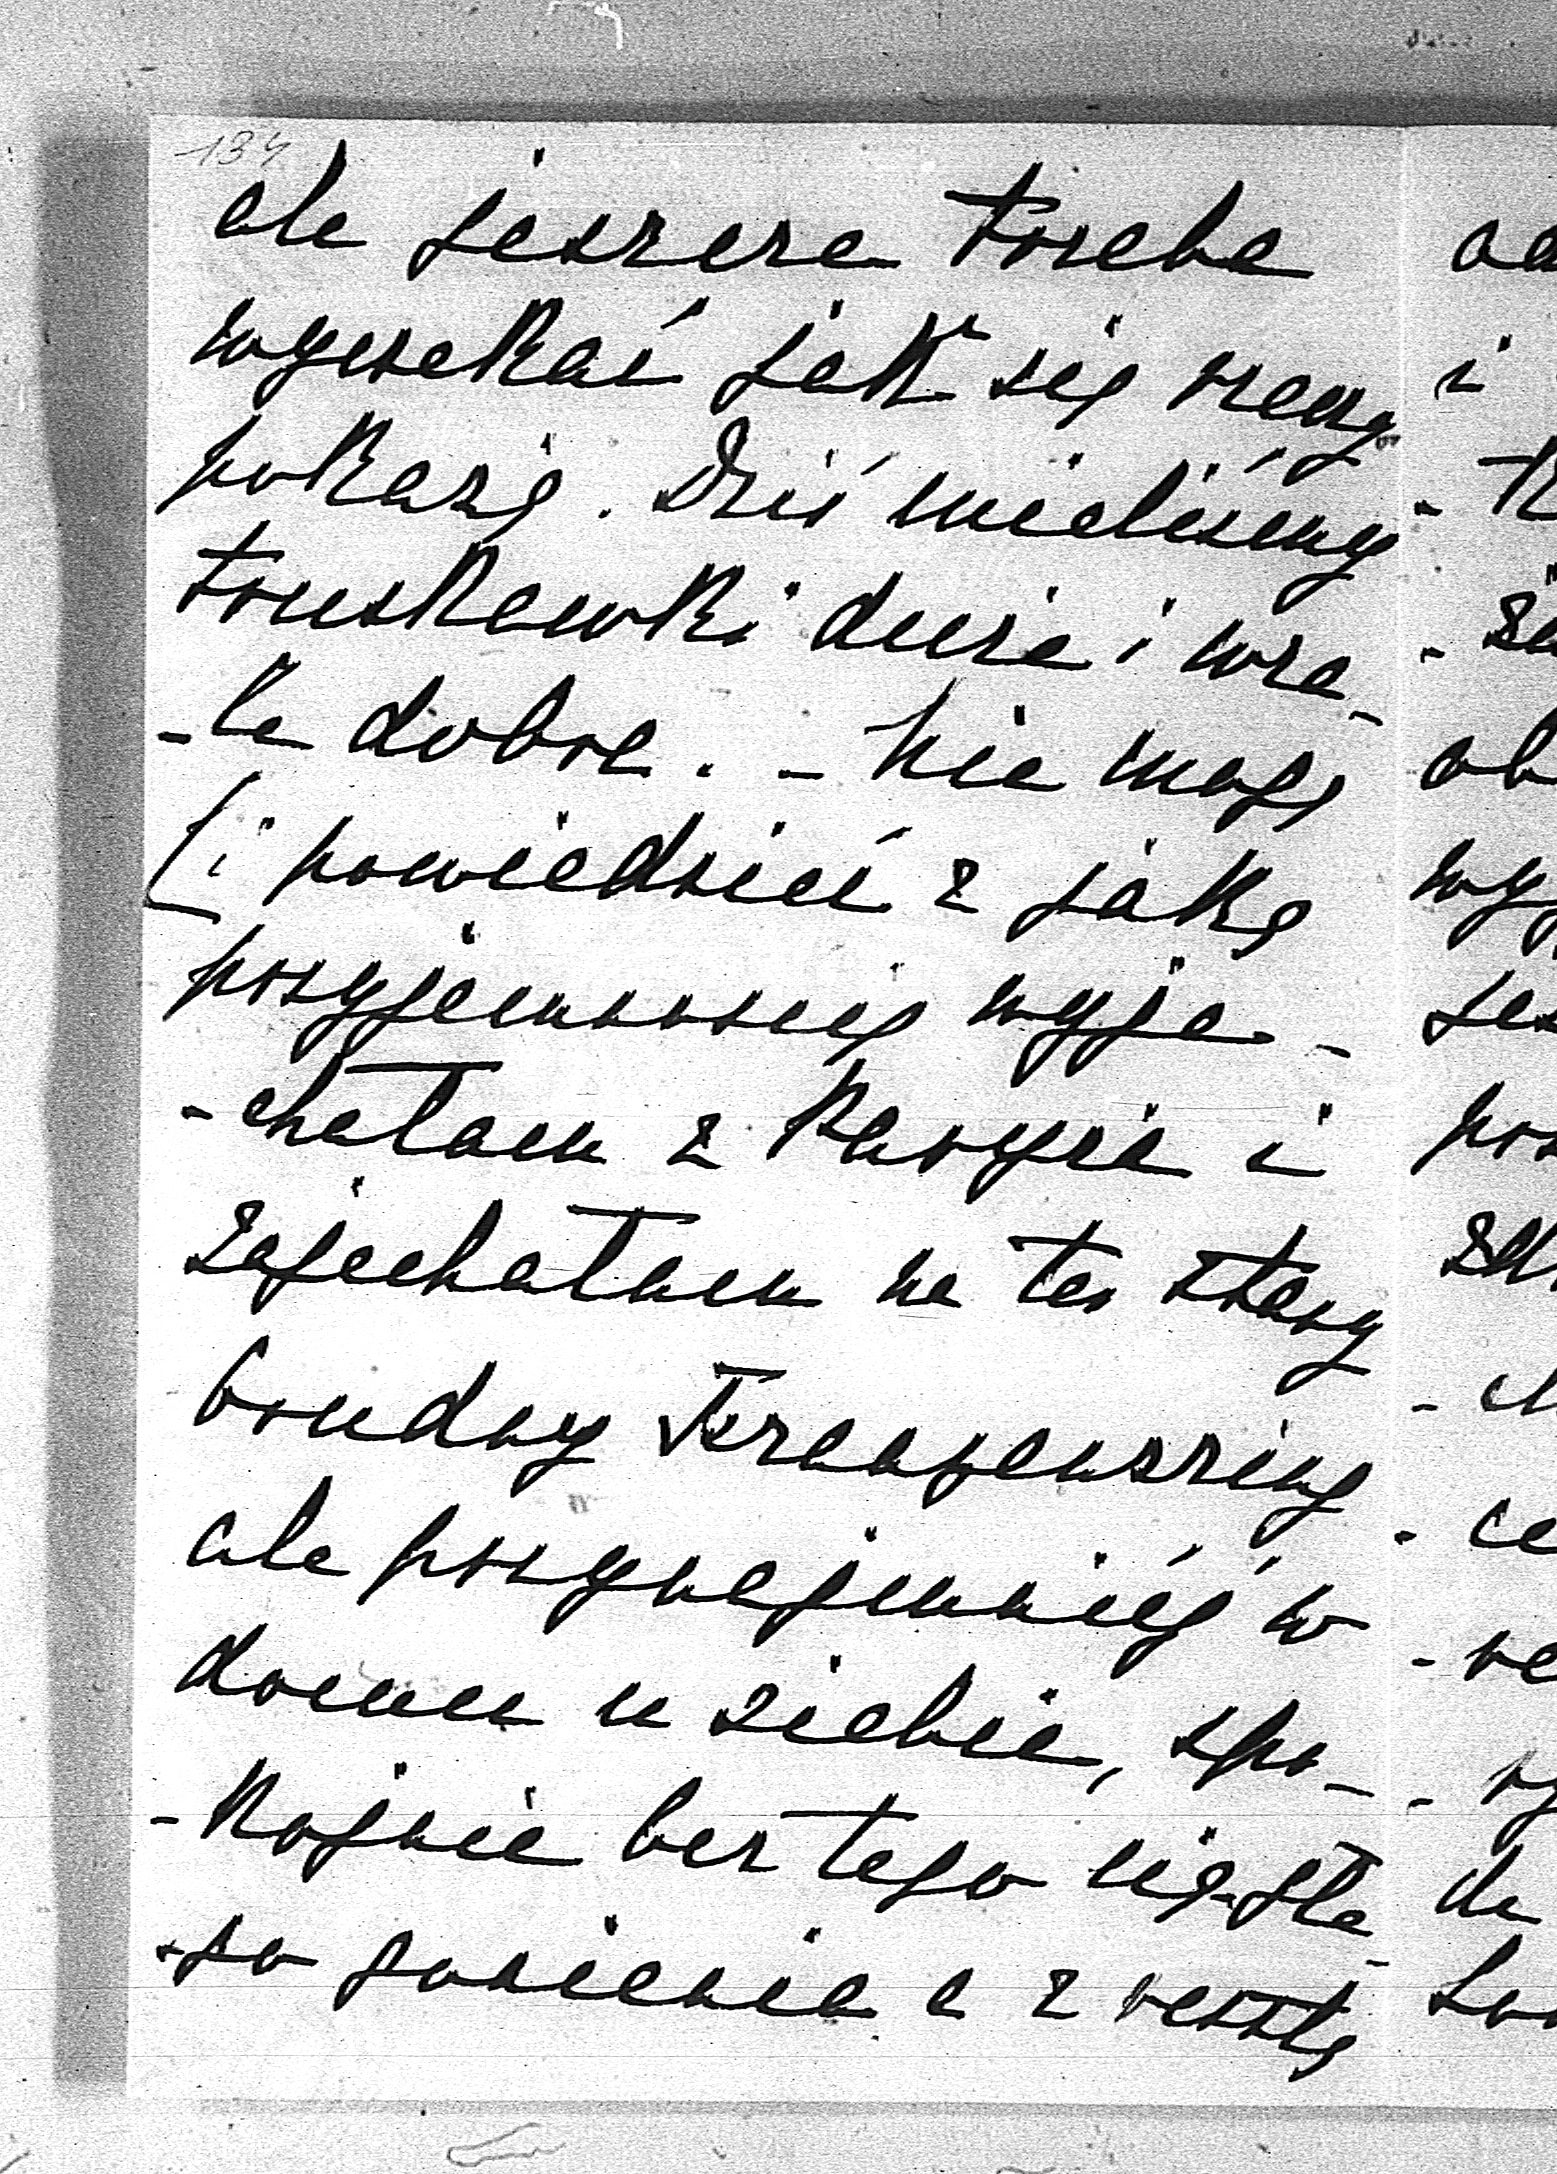 134
ale jeszcze trzeba
wyczekać jak się rzeczy
pokażą. Dziś mieliśmy
truskawki duże i wca-
-le dobre. - Nie mogę
Ci powiedzieć z jaką
przyjemnością wyje-
-chałam z Paryża i
zajechałam na ten stary
brudny Franzensring
ale przynajmniéj w
domu u siebie, spo-
-kojnie bez tego ciągłe-
-go gonienia a z resztą